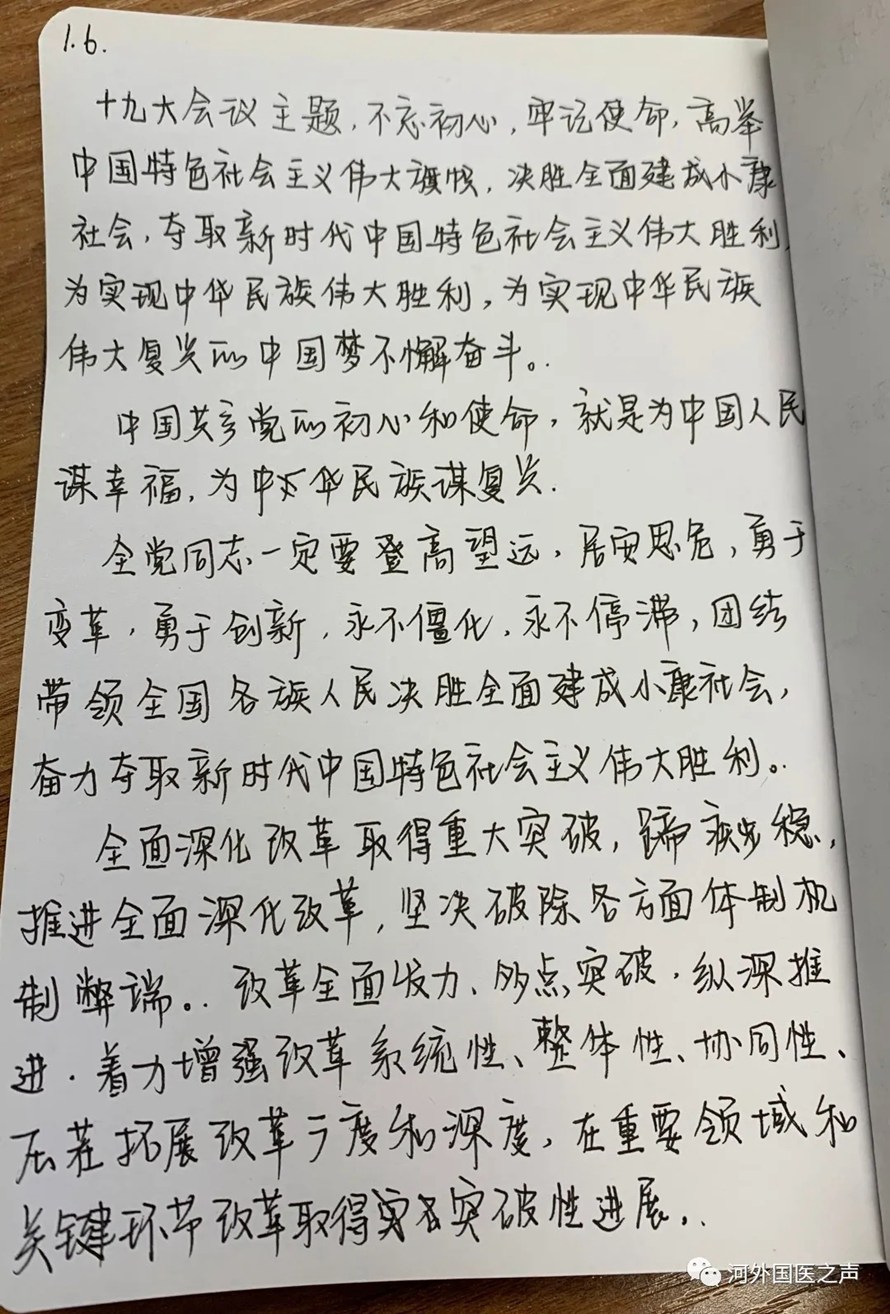 1.6.
十九大会议主题,不忘初心,牢记使命,高举
中国特色社会主义伟大旗帜,决胜全面建成小康
社会,夺取新时代中国特色社会主义伟大胜利,
为实现中华民族伟大胜利,为实现中华民族
伟大复兴的中国梦不懈奋斗。
中国共产党的初心和使命,就是为中国人民
谋幸福,为中华民族谋复兴.
全党同志一定要登高望远,居安思危,勇于
变革,勇于创新,永不僵化,永不停滞,团结
带领全国各族人民决胜全面建成小康社会,
奋力夺取新时代中国特色社会主义伟大胜利。
全面深化改革取得重大突破,蹄疾步稳,
推进全面深化改革,坚决破除各方面体制机
制弊端。改革全面发力、多点突破,纵深推
进.着力增强改革系统性、整体性、协同性、
压茬拓展改革广度和深度,在重要领域和
关键环节改革取得突破性进展.
河外国医之声